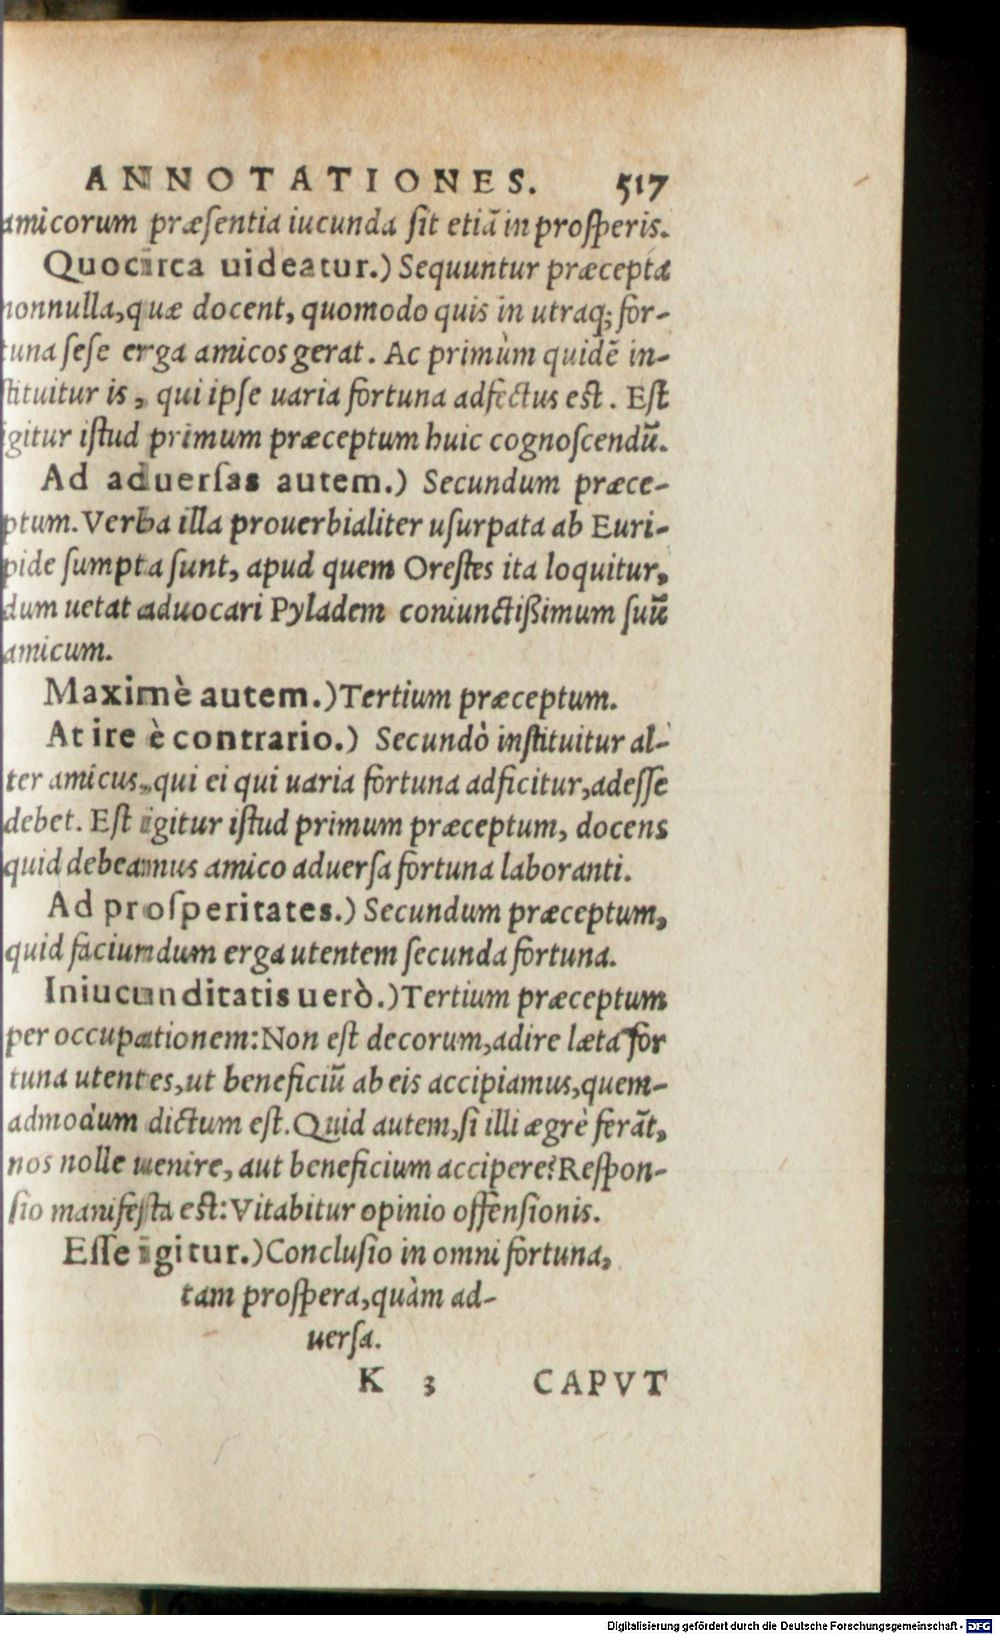 ANNOTATIONES. 517
amicorum præſentia iucunda ſit etiā in proſperis.
Quocirca uideatur.) Sequuntur præcepta
nonnulla, quæ docent, quomodo quis in utraq; for-
tuna ſeſe erga amicos gerat. Ac primùm quidē in-
ſtituitur is, qui ipſe uaria fortuna adfectus eſt. Eſt
igitur iſtud primum præceptum huic cognoſcendū.
Ad aduerſas autem.) Secundum præce-
ptum. Verba illa prouerbialiter uſurpata ab Euri-
pide ſumpta ſunt, apud quem Oreſtes ita loquitur,
dum uetat aduocari Pyladem coniunctißimum ſuū
amicum.
Maximè autem.) Tertium præceptum.
At ire è contrario.) Secundò inſtituitur al-
ter amicus, qui ei qui uaria fortuna adficitur, adeſſe
debet. Eſt igitur iſtud primum præceptum, docens
quid debeamus amico aduerſa fortuna laboranti.
Ad proſperitates.) Secundum præceptum,
quid faciundum erga utentem ſecunda fortuna.
Iniucunditatis uerò.) Tertium præceptum
per occupationem: Non eſt decorum, adire læta for
tuna utentes, ut beneficiū ab eis accipiamus, quem-
admodum dictum eſt. Quid autem, ſi illi ægrè ferāt,
nos nolle uenire, aut beneficium accipere? Reſpon-
ſio manifeſta eſt: Vitabitur opinio offenſionis.
Eſſe igitur.) Concluſio in omni fortuna,
tam proſpera, quàm ad-
uerſa.
K 3 CAPVT
Digitalisierung gefördert durch die Deutsche Forschungsgemeinschaft - DFG